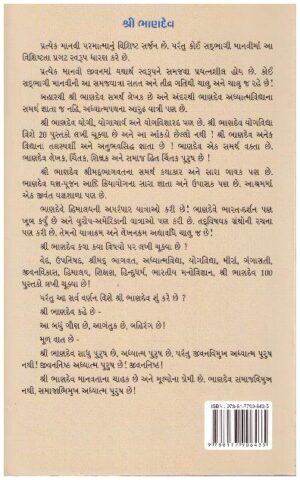 શ્રી ભાણદેવ
પ્રત્યેક માનવી પરમાત્માનું વિશિષ્ટ સર્જન છે. પરંતુ કોઈ સદ્ભાગી માનવીમાં આ
વિશિષ્ટતા પ્રગટ સ્વરૂપ ધારણ કરે છે.
પ્રત્યેક માનવી જીવનમાં યથાર્થ સ્વરૂપને સમજવા પ્રયત્નશીલ હોય છે. કોઈ
સદ્ભાગી માનવીની આ સમજયાત્રા સતત અને તીવ્ર ગતિથી ચાલુ અને ચાલુ જ રહે છે!
બહારથી શ્રી ભાણદેવ સમર્થ લેખક છે અને અંદરથી ભાણદેવ અધ્યાત્મવિદ્યાના
સમર્થ જ્ઞાતા જ નહિ, અધ્યાત્મપથના આરૂઢ યાત્રી પણ છે.
શ્રી ભાણદેવ યોગી, યોગાચાર્ય અને યોગશિક્ષક પણ છે. શ્રી ભાણદેવ યોગવિદ્યા
વિશે 20 પુસ્તકો લખી ચૂક્યા છે અને આ આંકડો છેલ્લો નથી! શ્રી ભાણદેવ અનેક
વિદ્યાના તલસ્પર્શી અને અનુભવસિદ્ધ જ્ઞાતા છે! ભાણદેવ એક સમર્થ વક્તા છે.
ભાણદેવ લેખક, ચિંતક, શિક્ષક અને સમાજ હિત ચિંતક પુરુષ છે!
શ્રી ભાણદેવ શ્રીમદ્ભાગવતના સમર્થ કથાકાર અને સારા ગાયક પણ છે.
ભાણદેવ યજ્ઞ-પૂજન આદિ ક્રિયાયોગના સારા જ્ઞાતા અને ઉપાસક પણ છે. આશ્રમમાં
એક જીવંત યજ્ઞશાળા પણ છે.
ભાણદેવે હિમાલયની અપરંપાર યાત્રાઓ કરી છે! ભાણદેવે ભારત-દર્શન પણ
ખૂબ કર્યું છે અને યુરોપ-અમેરિકાની યાત્રાઓ પણ કરી છે. તદ્વિષયક ગ્રંથોની રચના
પણ કરી છે. તેમનો યાત્રાક્રમ અને લેખનક્રમ અદ્યાવધિ ચાલુ જ છે!
શ્રી ભાણદેવ ક્યા ક્યા વિષયો પર લખી ચૂક્યા છે ?
વેદ, ઉપનિષદ, શ્રીમદ્ ભાગવત, અધ્યાત્મવિદ્યા, યોગવિદ્યા, મીરાં, ગંગાસતી,
જીવનવિકાસ, હિમાલય, શિક્ષણ, હિન્દુધર્મ, ભારતીય મનોવિજ્ઞાન, શ્રી ભાણદેવ 100
પુસ્તકો લખી ચૂક્યા છે!
પરંતુ આ સર્વ વર્ણન વિશે શ્રી ભાણદેવ શું કહે છે ?
શ્રી ભાણદેવ કહે છે -
આ બધું ગૌણ છે, આગંતુક છે, બહિરંગ છે!
મૂળ વાત છે -
શ્રી ભાણદેવ સાધુ પુરુષ છે, અધ્યાત્મ પુરુષ છે, પરંતુ જીવનવિમુખ અધ્યાત્મ પુરુષ
નથી! જીવનનિષ્ઠ અધ્યાત્મ પુરુષ છે! જીવનનિષ્ઠ!
શ્રી ભાણદેવ માનવતાના ચાહક છે અને મૂલ્યોના પ્રેમી છે. ભાણદેવ સમાજવિમુખ
નથી, સમાજાભિમુખ અધ્યાત્મ પુરુષ છે!